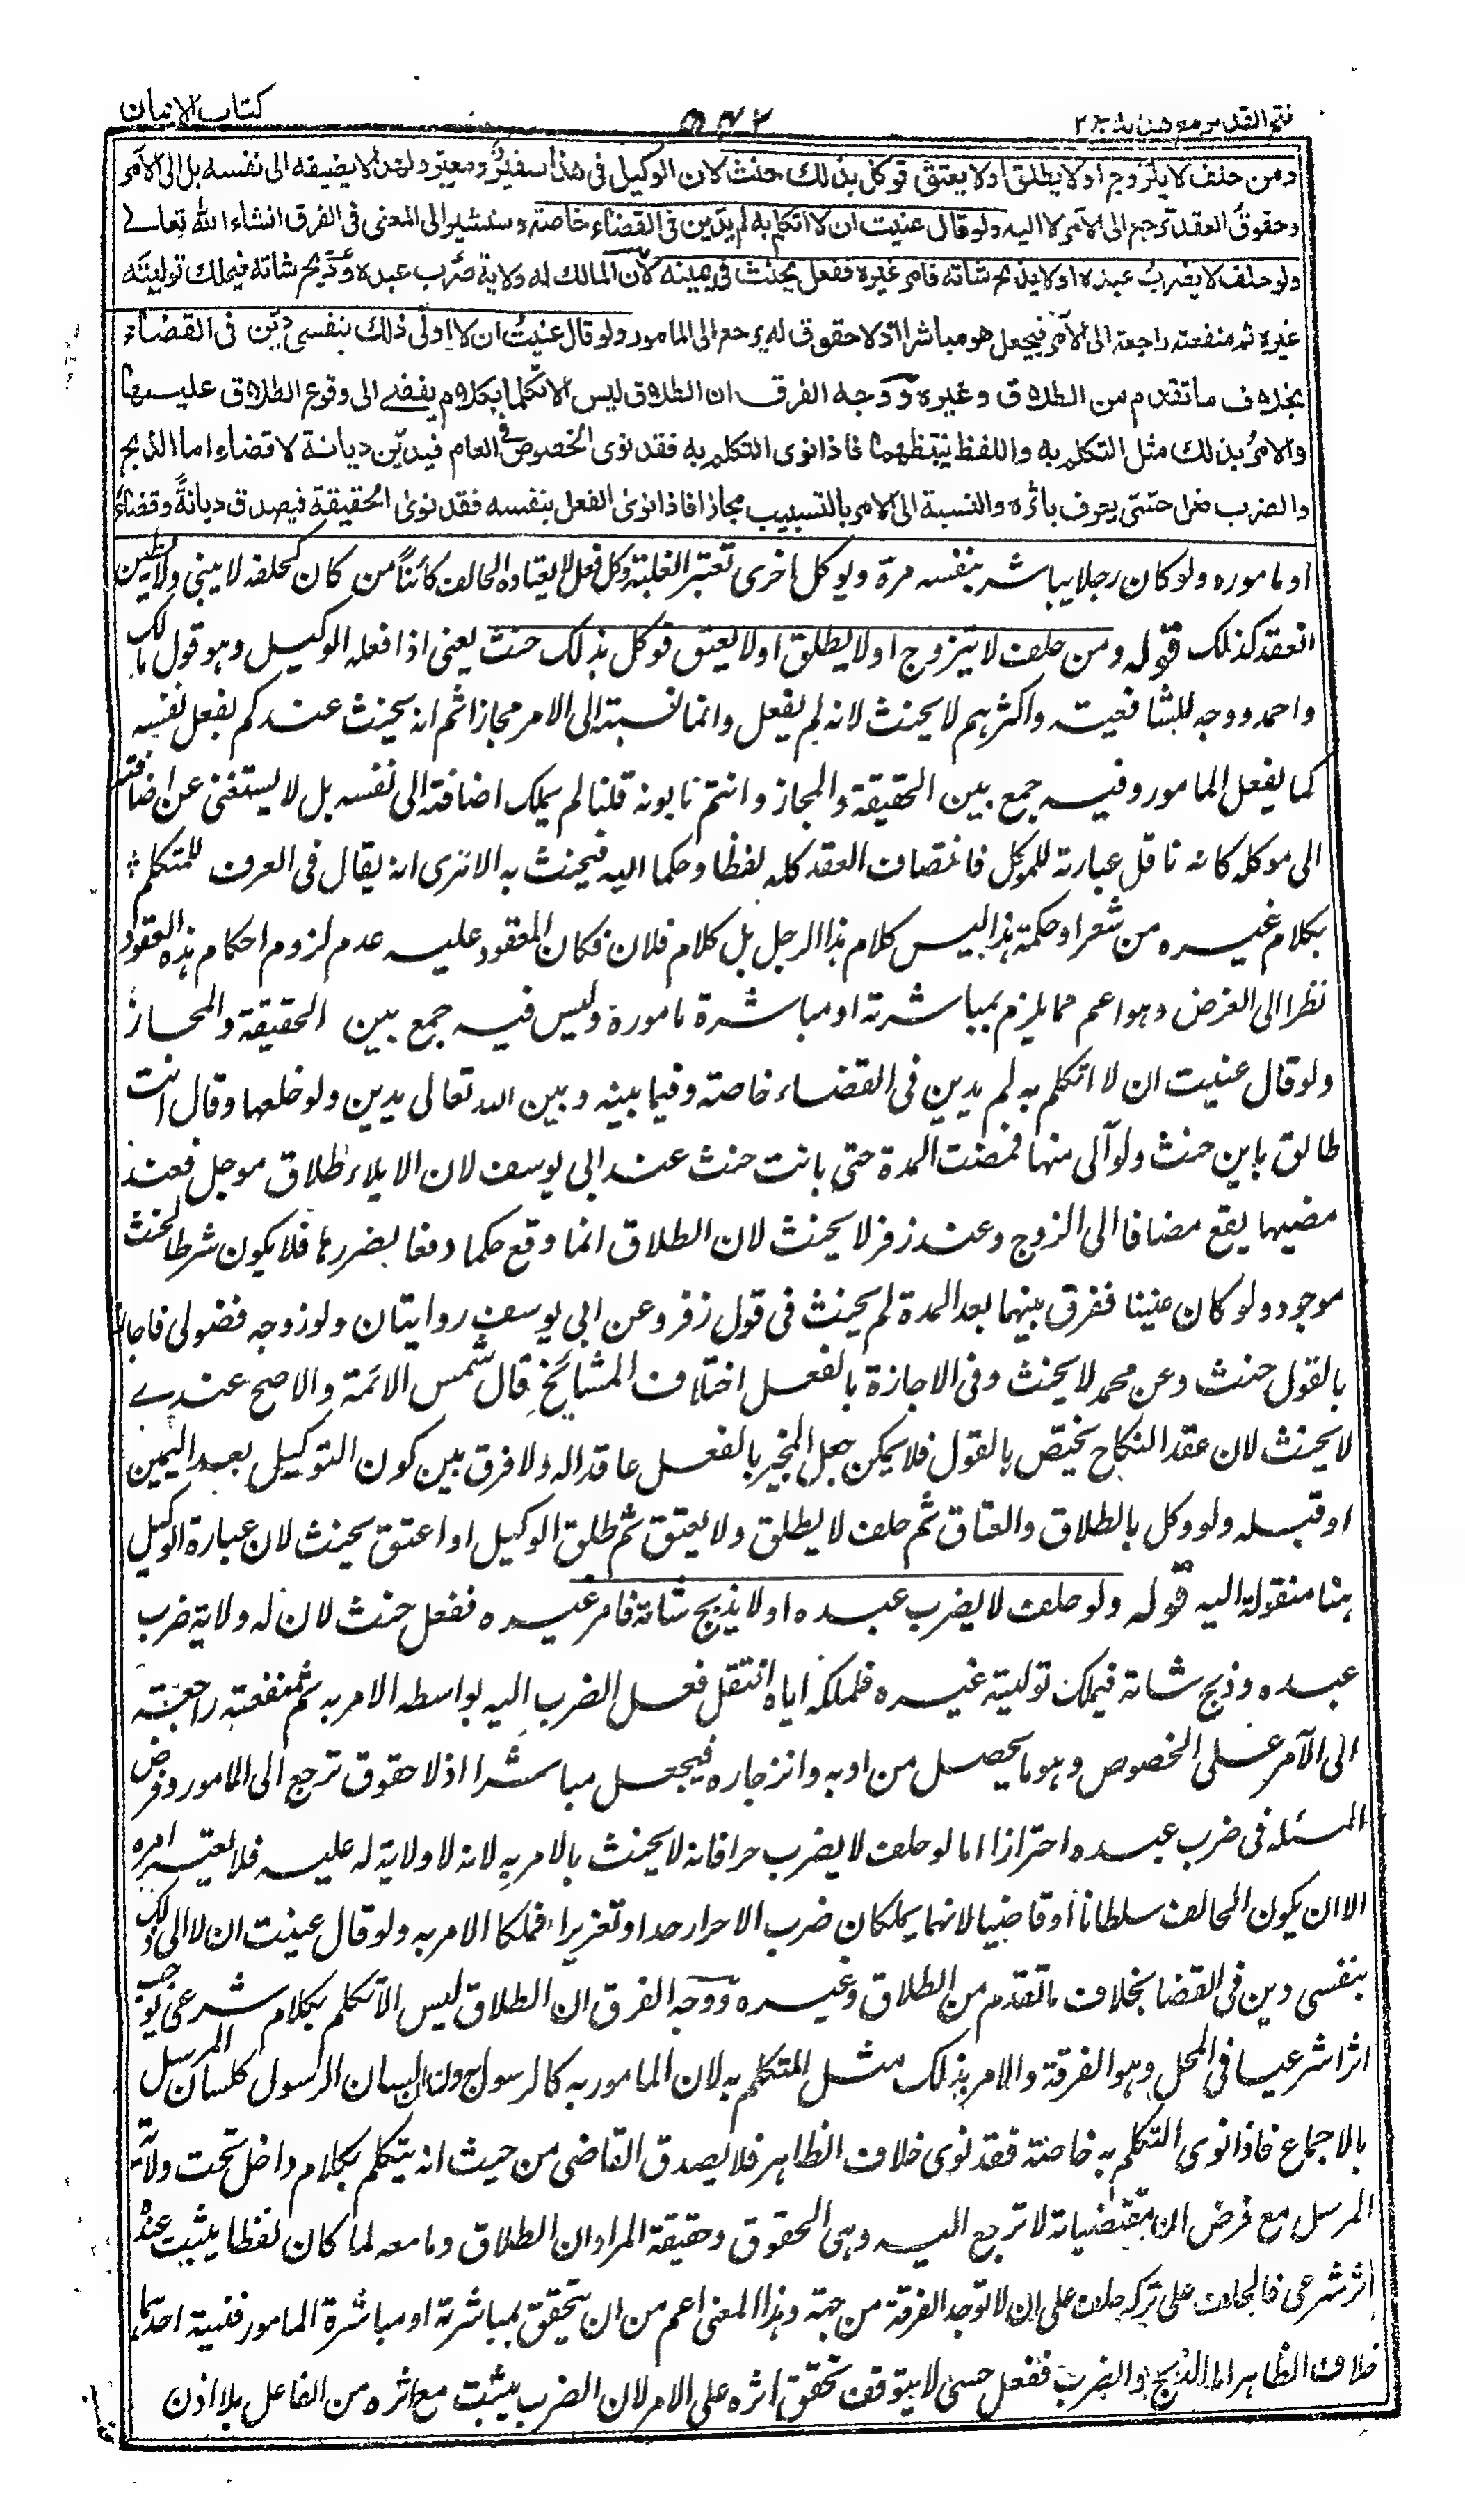 فتح القدير مع هدايه ج ٢
٥٤٢
كتاب الايمان
ومن حلف لا يتزوج او لا يطلق او لا يعتق فوكل بذلك حنث لان الوكيل فى هذا سفير ومعبر ولهذا لا يضيفه الى نفسه بل الى الآمر
وحقوق العقد ترجع الى الآمر لا اليه ولو قال عنيت ان لا اتكلم به لم يدين فى القضاء خاصة وسنشير الى المعنى فى الفرق انشاء الله تعالے
ولو حلف لا يضرب عبده او لا يذبح شاته فامر غيره ففعل يحنث فى يمينه لان المالك له ولاية ضرب عبده وذبح شاته فيملك توليته
غيره ثم منفعته راجعة الى الآمر فيجعل هو مباشرا اذ لا حقوق له يرجع الى المامور ولو قال عنيت ان لا اولى ذلك بنفسى دين فى القضاء
بخلاف ما تقدم من الطلاق وغيره ووجه الفرق ان الطلاق ليس الا تكلما بكلام يفضے الى وقوع الطلاق عليها
والامر بذلك مثل التكلم به واللفظ ينتظمهما فاذا نوى التكلم به فقد نوى الخصوص فى العام فيدين ديانة لا قضاء واما الذبح
والضرب فعل حسّى يعرف باثره والنسبة الى الامر بالتسبيب مجازا فاذا نوى الفعل بنفسه فقد نوى الحقيقة فيصدق ديانة وقضاء
او ماموره ولو كان رجلا يباشر بنفسه مرة ويوكل اخرى تعتبر الغلبة وكل فعل لا يعتاده الحالف كائنا من كان كحلفه لا يبنى ولا يطين
انعقد كذلك قوله ومن حلف لا يتزوج او لا يطلق او لا يعتق فوكل بذلك حنث يعنى اذا فعله الوكيل وهو قول مالك
واحمد ووجه للشافعية واكثرهم لا يحنث لانه لم يفعل وانما نسبته الى الامر مجازا ثم انه يحنث عندكم بفعل نفسه
كما يفعل المامور وفيه جمع بين الحقيقة والمجاز وانتم تابونه قلنا لم يملك اضافته الى نفسه بل لا يستغنى عن اضافته
الى موكله كانه ناقل عبارته للموكل فانضاف العقد كله لفظا وحكما اليه فيحنث به الا ترى انه يقال فى العرف للمتكلم
بكلام غيره من شعر او حكمة هذا ليس كلام هذا الرجل بل كلام فلان فكان المعقود عليه عدم لزوم احكام هذه العقود
نظرا الى الغرض وهو اعم مما يلزم بمباشرته او مباشرة مامورة وليس فيه جمع بين الحقيقة والمجاز
ولو قال عنيت ان لا اتكلم به لم يدين فى القضاء خاصة وفيما بينه وبين الله تعالى يدين ولو خلعها وقال انت
طالق باين حنث ولو آلى منها فمضت المدة حتى بانت حنث عند ابى يوسف لان الايلاء طلاق موجل فعند
مضيها يقع مضافا الى الزوج وعند زفر لا يحنث لان الطلاق انما وقع حكما دفعا لضررها فلا يكون شرط الحنث
موجود ولو كان عنينا ففرق بينهما بعد المدة لم يحنث فى قول زفر وعن ابى يوسف روايتان ولو زوجه فضولى فاجاز
بالقول حنث وعن محمد لا يحنث وفى الاجازة بالفعل اختلاف المشائخ قال شمس الائمة والاصح عندے
لا يحنث لان عقد النكاح يختص بالقول فلا يمكن جعل المجيز بالفعل عاقدا له ولا فرق بين كون التوكيل بعد اليمين
او قبله ولو وكل بالطلاق والعتاق ثم حلف لا يطلق ولا يعتق ثم طلق الوكيل او اعتق يحنث لان عبارة الوكيل
هنا منقولة اليه قوله ولو حلف لا يضرب عبده او لا يذبح شاته فامر غيره ففعل حنث لان له ولاية ضرب
عبده وذبح شاته فيملك توليته غيره فلملكه اياه انتقل فعل الضرب اليه بواسطه الامر به ثم منفعته راجعة
الى الآمر على الخصوص وهو ما يحصل من ادبه وانزجاره فيجعل مباشرا اذ لا حقوق ترجع الى المامور وفرض
المسئله فى ضرب عبده احترازا اما لو حلف لا يضرب حرا فانه لا يحنث بالامر به لانه لا ولاية له عليه فلا يعتبر امره
الا ان يكون الحالف سلطانا او قاضيا لانهما يملكان ضرب الاحرار حدا وتعزيرا فملكا الامر به ولو قال عنيت ان لا الى ذلك
بنفسى دين فى القضا بخلاف ما تقدم من الطلاق وغيره ووجه الفرق ان الطلاق ليس الا تكلم بكلام شرعى يوجب
اثرا شرعيا فى المحل وهو الفرقة والامر بذلك مثل المتكلم به لان المامور به كالرسول ولسان الرسول كلسان المرسل
بالاجماع فاذا نوى التكلم به خاصة فقد نوى خلاف الظاهر فلا يصدق القاضى من حيث انه يتكلم بكلام داخل تحت ولاية
المرسل مع فرض ان مقتضياته لا ترجع اليه وهى الحقوق وحقيقة المراد ان الطلاق وما معه لما كان لفظا يثبت عنده
اثر شرعى فالحلف على تركه حلف على ان لا توجد الفرقة من جهته وهذا المعنى اعم من ان يتحقق بمباشرته او مباشرة المامور فنية احدهما
خلاف الظاهر اما الذبح والضرب ففعل حسى لا يتوقف تحقق اثره على الامر لان الضرب يثبت مع اثره من الفاعل بلا اذن